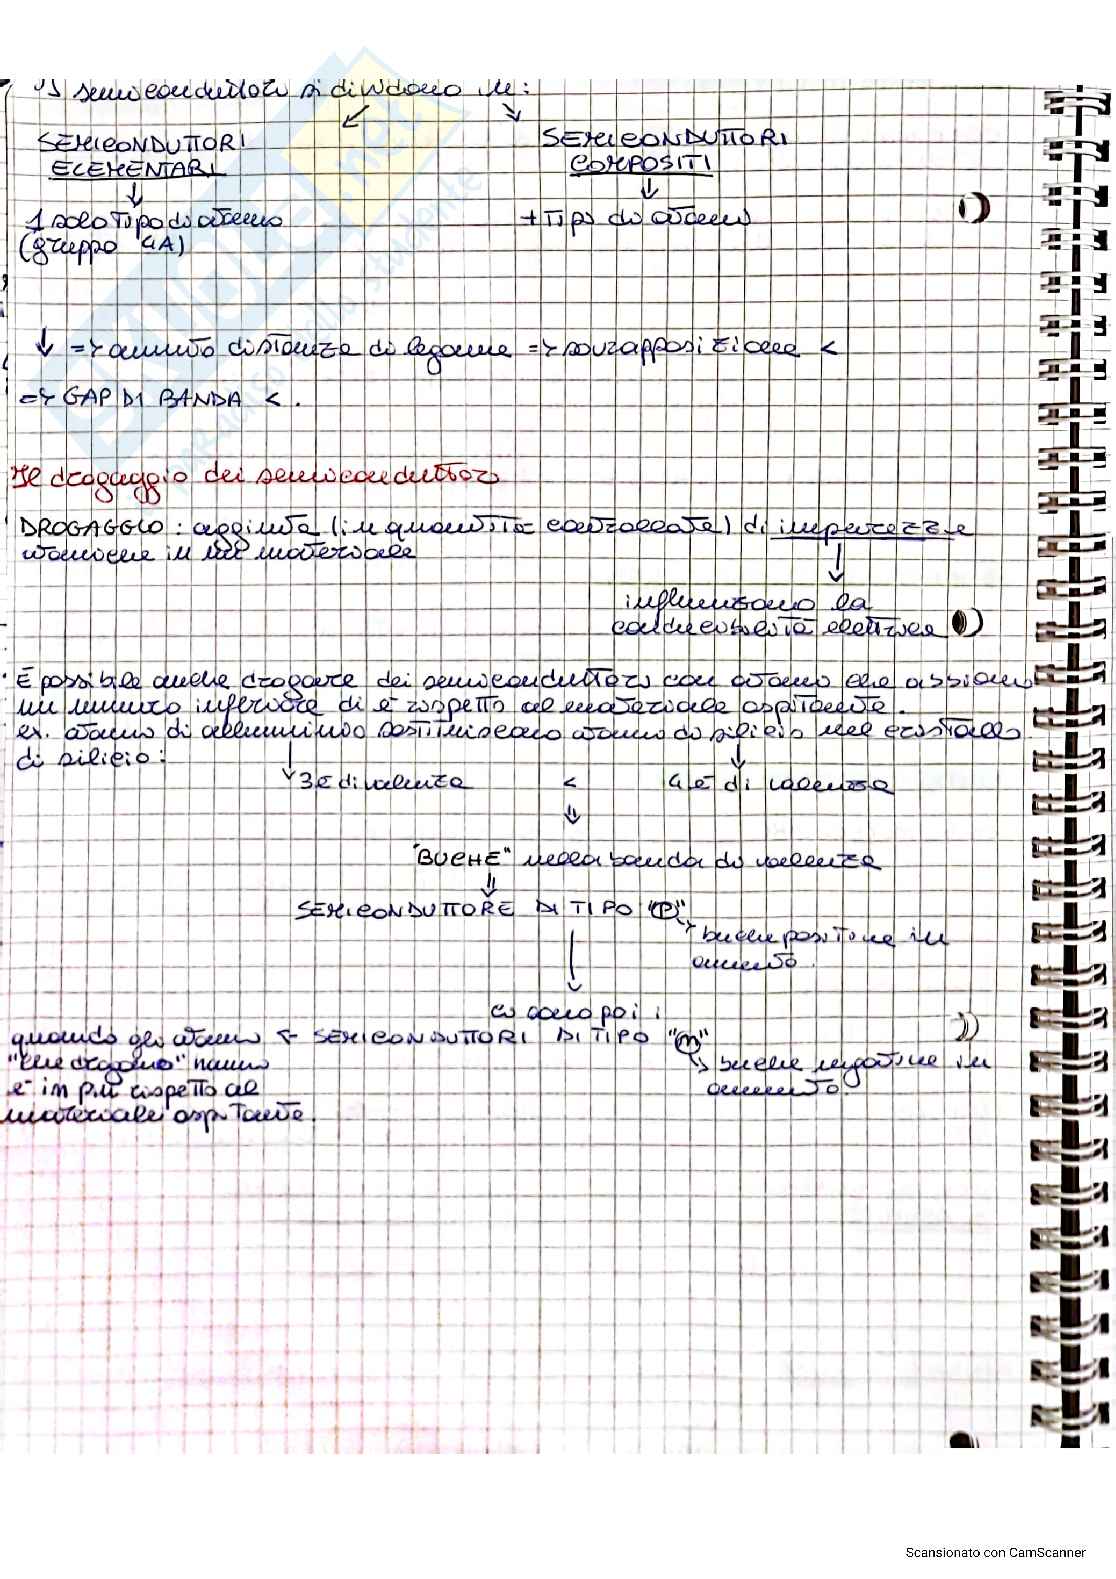 I semiconduttori si dividono in:
SEMICONDUTTORI ELEMENTARI
SEMICONDUTTORI COMPOSITI
1 solo tipo di atomo (gruppo 4A)
+ tipi di atomi
↓ => aumento distanza di legame => sovrapposizione <
=> GAP DI BANDA < .
Il drogaggio dei semiconduttori
DROGAGGIO : aggiunta (in quantità controllate) di impurezze
atomiche in un materiale
influenzano la
conducibilità elettrica
È possibile anche drogare dei semiconduttori con atomi che abbiano
un numero inferiore di e⁻ rispetto al materiale ospitante.
es. atomi di alluminio sostituiscono atomi di silicio nel cristallo
di silicio:
3e⁻ di valenza < 4e⁻ di valenza
"BUCHE" nella banda di valenza
SEMICONDUTTORE DI TIPO "P"
buche positive in
aumento.
ci sono poi i
quando gli atomi ← SEMICONDUTTORI DI TIPO "n"
"che drogano" hanno
e⁻ in più rispetto al
materiale ospitante.
buche negative in
aumento.
Scansionato con CamScanner